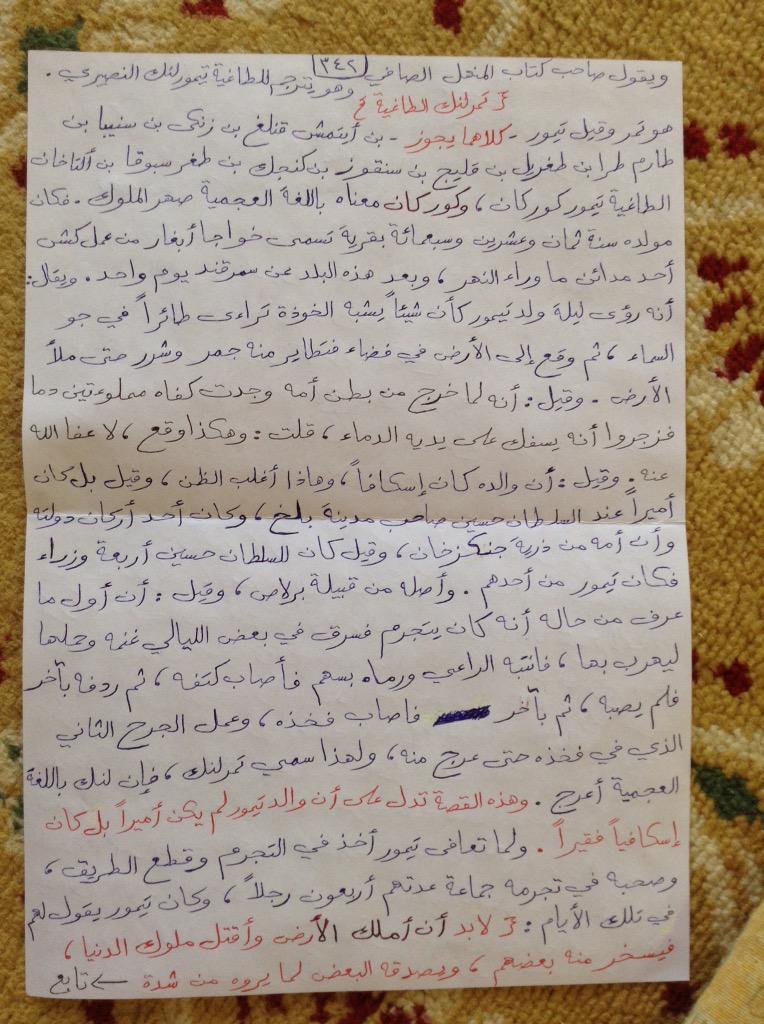 ويقول صاحب كتاب المنهل الصافي (٣٤٢) وهو يترجم للطاغية تيمورلنك النصيري .
تمرلنك الطاغية
هو تمر وقيل تيمور - كلاهما يجوز - بن أيتمش قنلغ بن زنكي بن سنيبا بن
طارم طرا بن طغريل بن قليج بن سنقوز بن كنجك بن طغر سبوقا بن ألتاخان
الطاغية تيمور كوركان ، وكوركان معناه باللغة العجمية صهر الملوك . فكان
مولده سنة ثمان وعشرين وسبعمائة بقرية تسمى خواجا أبغار من عمل كش
أحد مدائن ما وراء النهر ، وبعد هذه البلد عن سمرقند يوم واحد . ويقال :
أنه رؤى ليلة ولد تيمور كأن شيئاً يشبه الخوذة تراءى طائراً في جو
السماء ، ثم وقع إلى الأرض في فضاء فتطاير منه جمر وشرر حتى ملأ
الأرض . وقيل : أنه لما خرج من بطن أمه وجدت كفاه مملوءتين دما
فزجروا أنه يسفك على يديه الدماء ، قلت : وهكذا وقع ، لا عفا الله
عنه . وقيل : أن والده كان إسكافاً ، وهاذا أغلب الظن ، وقيل بل كان
أميراً عند السلطان حسين صاحب مدينة بلخ ، وكان أحد أركان دولته
وأن أمه من ذرية جنكزخان ، وقيل كان للسلطان حسين أربعة وزراء
فكان تيمور من أحدهم . وأصله من قبيلة برلاص ، وقيل : أن أول ما
عرف من حاله أنه كان يتجرم فسرق في بعض الليالي غنمه وحملها
ليهرب بها ، فانتبه الراعي ورماه بسهم فأصاب كتفه ، ثم ردفه بآخر
فلم يصبه ، ثم بآخر فاصاب فخذه ، وعمل الجرح الثاني
الذي في فخذه حتى عرج منه ، ولهذا سمي تمرلنك ، فإن لنك باللغة
العجمية أعرج . وهذه القصة تدل على أن والد تيمور لم يكن أميراً بل كان
إسكافياً فقيراً . ولما تعافى تيمور أخذ في التجرم وقطع الطريق ،
وصحبه في تجرمه جماعة عدتهم أربعون رجلاً ، وكان تيمور يقول لهم
في تلك الأيام : لابد أن أملك الأرض وأقتل ملوك الدنيا ،
فيسخر منه بعضهم ، ويصدقه البعض لما يروه من شدة ← تابع